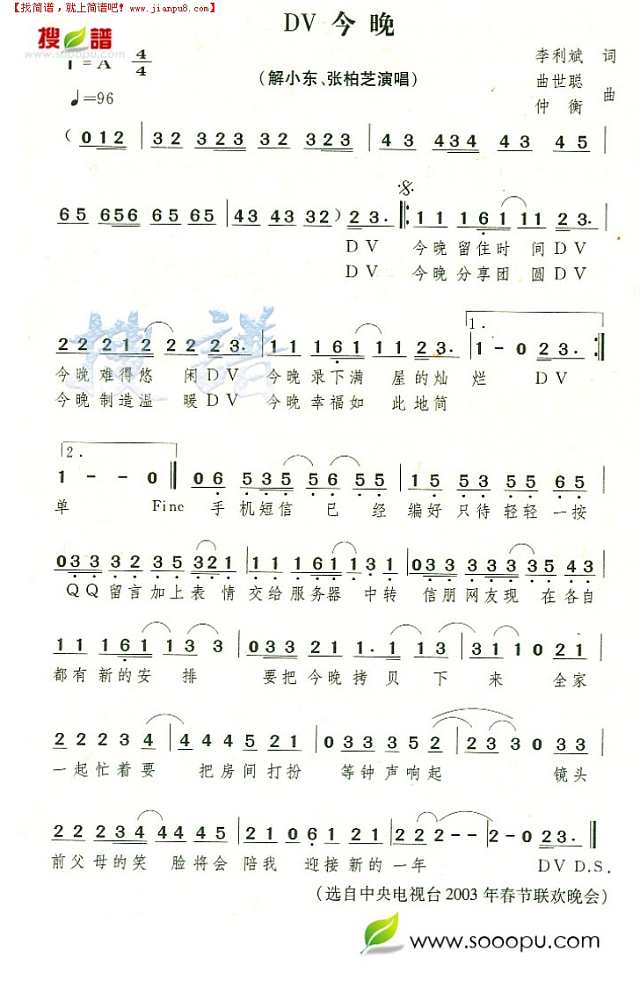 【找简谱，就上简谱吧！www.jianpu8.com】
搜谱
www.sooopu.com
DV 今晚
1=A 4/4
♩=96
(解小东、张柏芝演唱)
李利斌 词
曲世聪
仲衡 曲
( 012 | 32 323 32 323 | 43 434 43 45 |
65 656 65 65 | 43 43 32 ) 23. 𝄋 |: 11 161 11 23. |
DV 今晚留住时间DV
DV 今晚分享团圆DV
22 212 22 23. | 11 161 11 61 | 1.
1-0 23. :|
今晚难得悠闲DV 今晚录下满屋的灿烂 DV
今晚制造温暖DV 今晚幸福如此地简
2.
1 - - 0 || 06 535 56 55 | 15 53 55 65 |
单 Fine 手机短信已经编好只待轻轻一按
033 32 35 321 | 11 161 1 31 | 033 33 33 35 43 |
QQ留言加上表情交给服务器中转 信朋网友现在各自
11 161 13 3 | 033 21 1. 1 13 | 31 1 0 21 |
都有新的安排 要把今晚拷贝下来 全家
222 23 4 | 4445 21 | 033 352 | 2330 21 |
一起忙着要 把房间打扮 等钟声响起 镜头
222 234 445 42 | 21 02 61 21 | 222 2-- | 2-0 23. |
前父母的笑脸将会陪我 迎接新的一年 DV D.S.
(选自中央电视台2003年春节联欢晚会)
www.sooopu.com